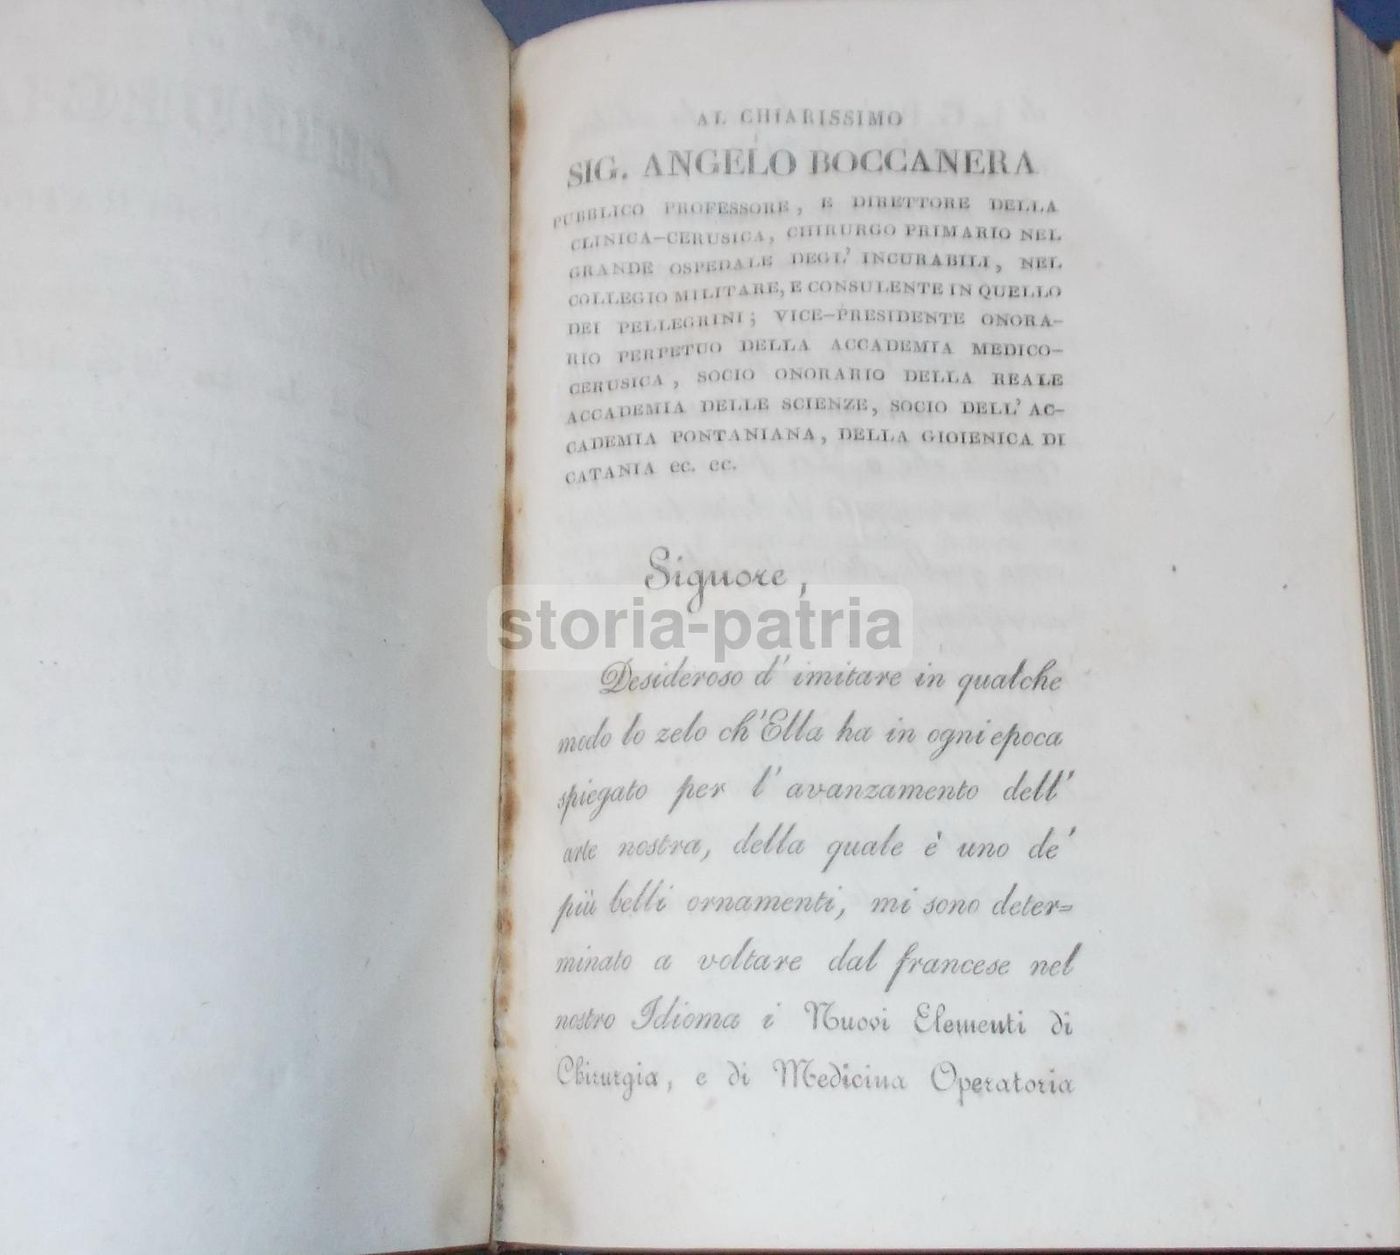 AL CHIARISSIMO
SIG. ANGELO BOCCANERA
PUBBLICO PROFESSORE, E DIRETTORE DELLA
CLINICA-CERUSICA, CHIRURGO PRIMARIO NEL
GRANDE OSPEDALE DEGL' INCURABILI, NEL
COLLEGIO MILITARE, E CONSULENTE IN QUELLO
DEI PELLEGRINI; VICE-PRESIDENTE ONORA-
RIO PERPETUO DELLA ACCADEMIA MEDICO-
CERUSICA, SOCIO ONORARIO DELLA REALE
ACCADEMIA DELLE SCIENZE, SOCIO DELL' AC-
CADEMIA PONTANIANA, DELLA GIOIENICA DI
CATANIA ec. ec.
Signore,
storia-patria
Desideroso d' imitare in qualche
modo lo zelo ch'Ella ha in ogni epoca
spiegato per l' avanzamento dell'
arte nostra, della quale è uno de'
più belli ornamenti, mi sono deter=
minato a voltare dal francese nel
nostro Idioma i Nuovi Elementi di
Chirurgia, e di Medicina Operatoria